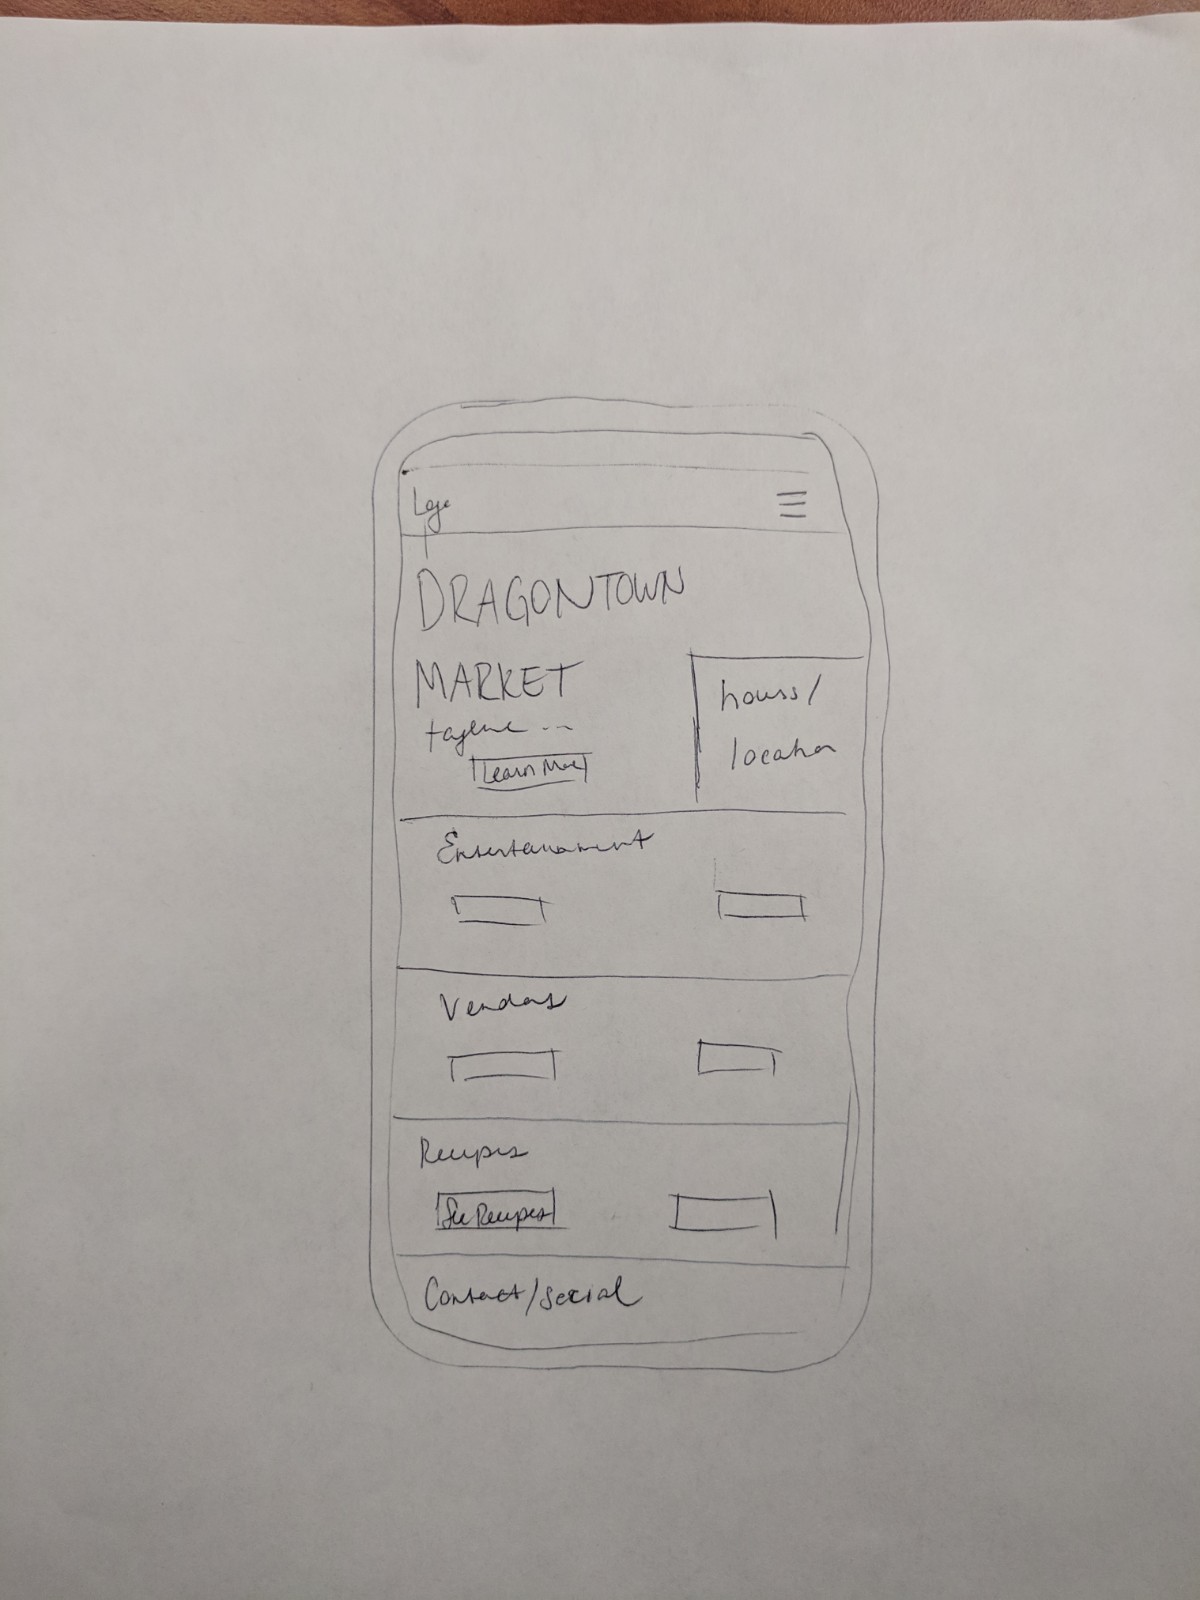 Logo
DRAGONTOWN
MARKET
tagline ...
Learn More
hours/
location
Entertainment
Vendors
Recipes
See Recipes
Contact/social